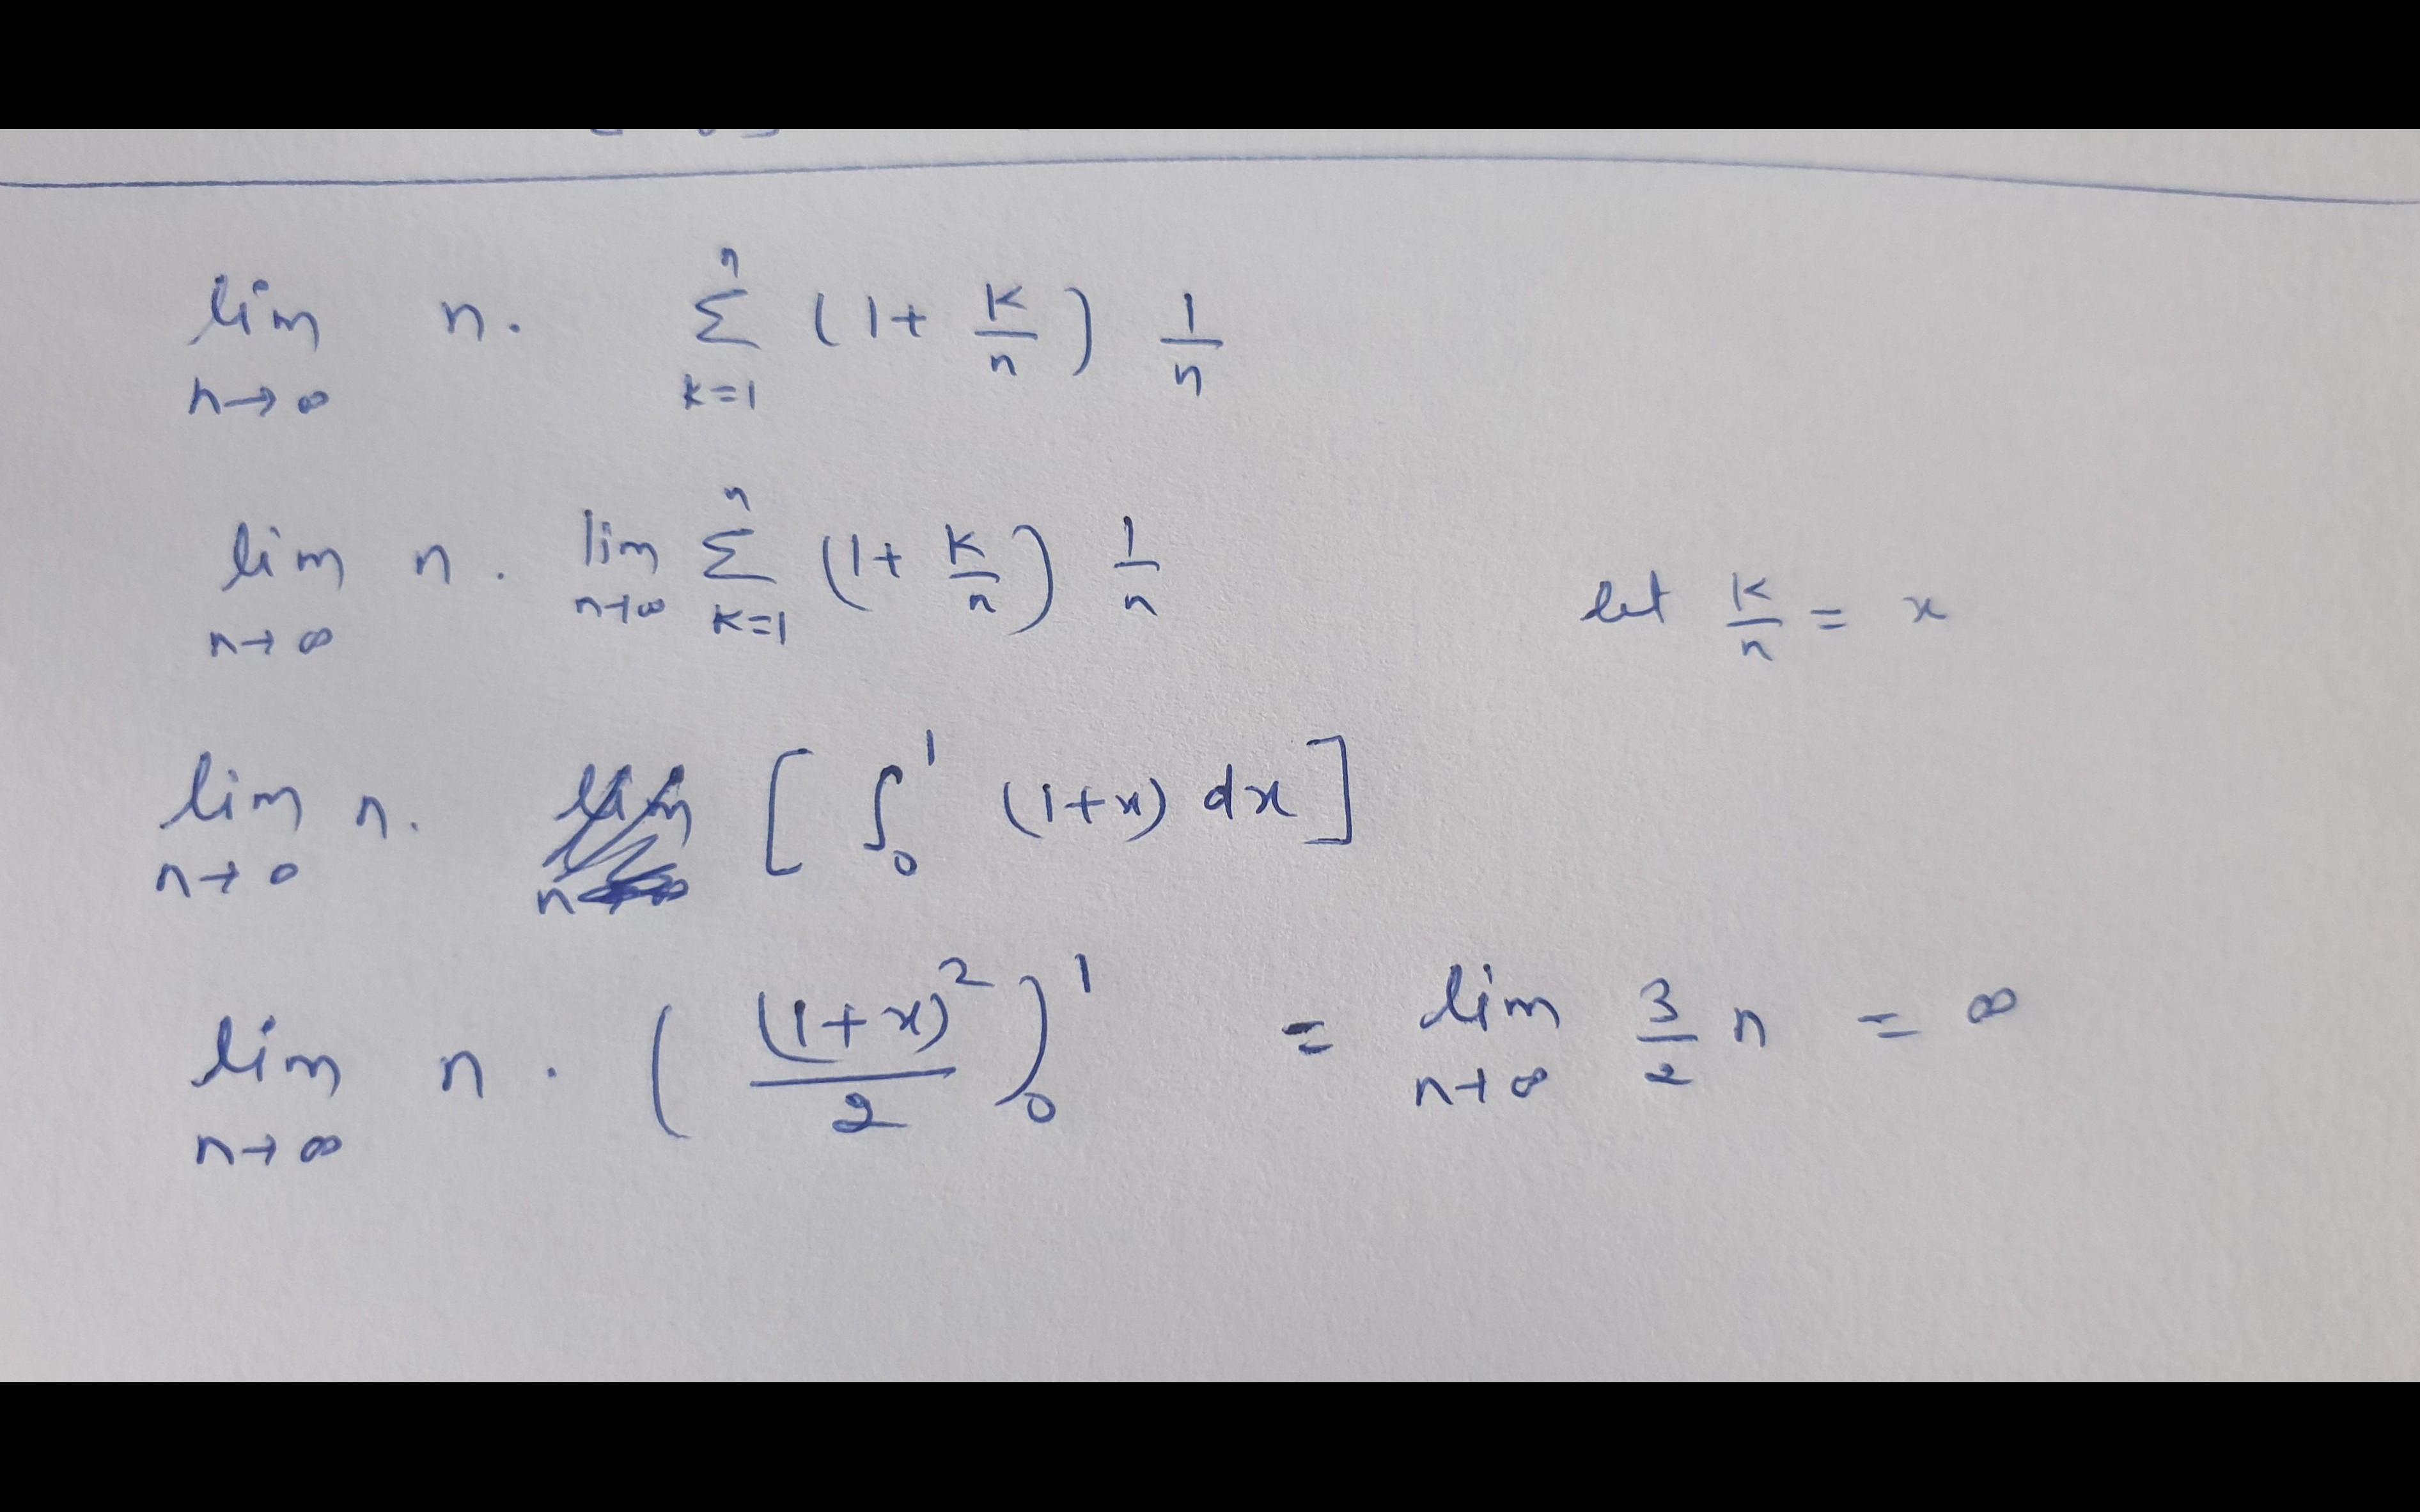 lim n→∞ n. Σ k=1 n (1 + K/n) 1/n
lim n→∞ n. lim n→∞ Σ K=1 n (1 + K/n) 1/n let K/n = x
lim n→0 n. [ ∫ 0 1 (1+x) dx ]
lim n→∞ n . ( (1+x)² / 2 ) 0 1 = lim n→∞ 3/2 n = ∞